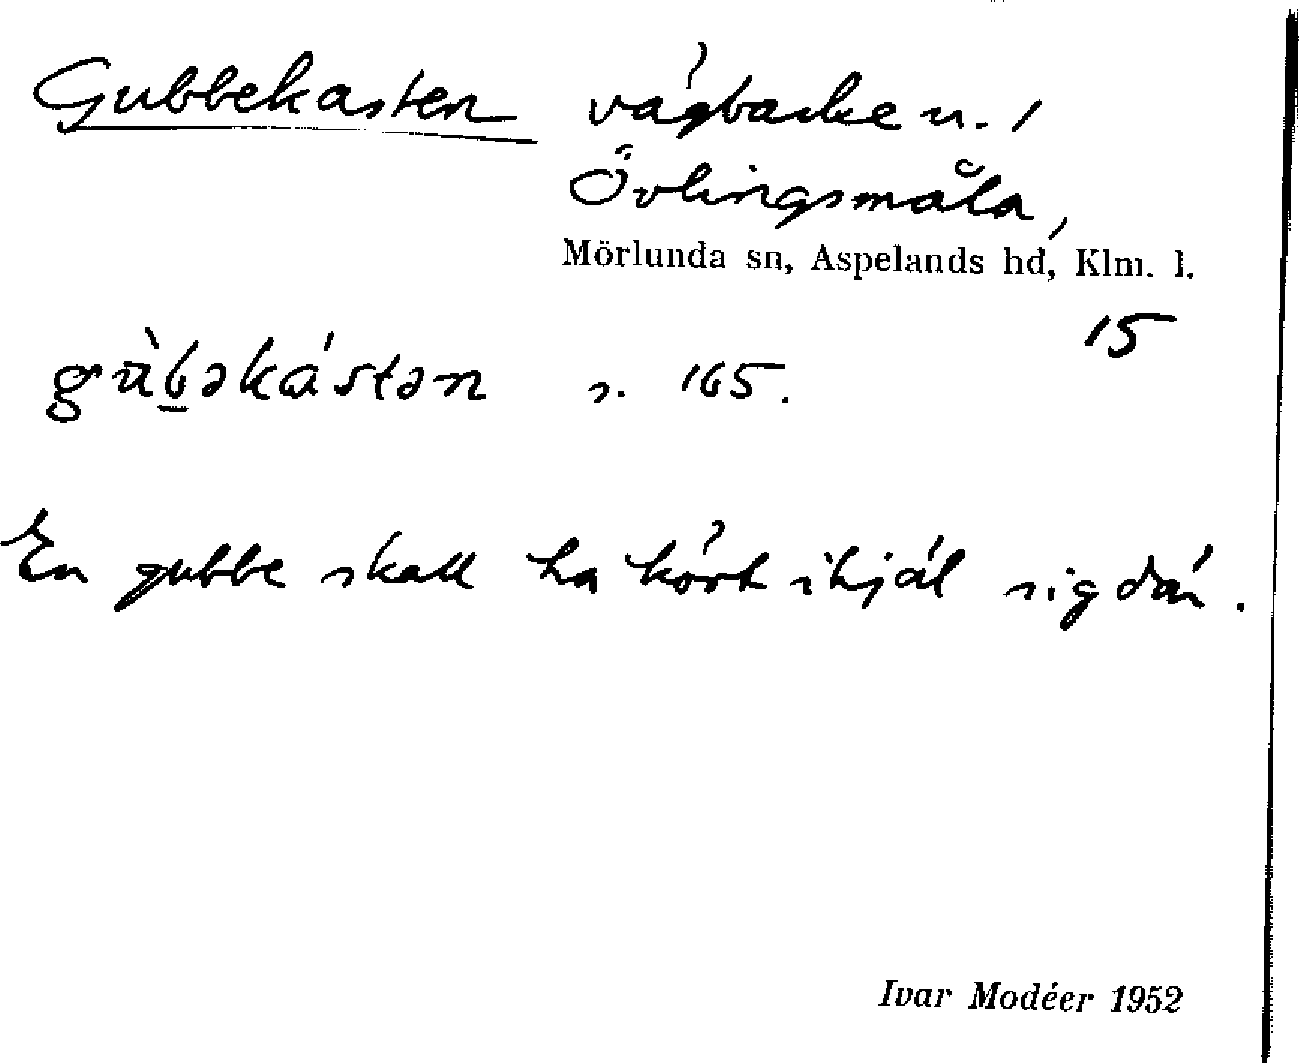 Gubbekasten vägbacke n. /
Övlingsmåla,
Mörlunda sn, Aspelands hd, Klm. l.
15
gùb̲əkástən s. 165.
En gubbe skall ha kört ihjäl sig där.
Ivar Modéer 1952